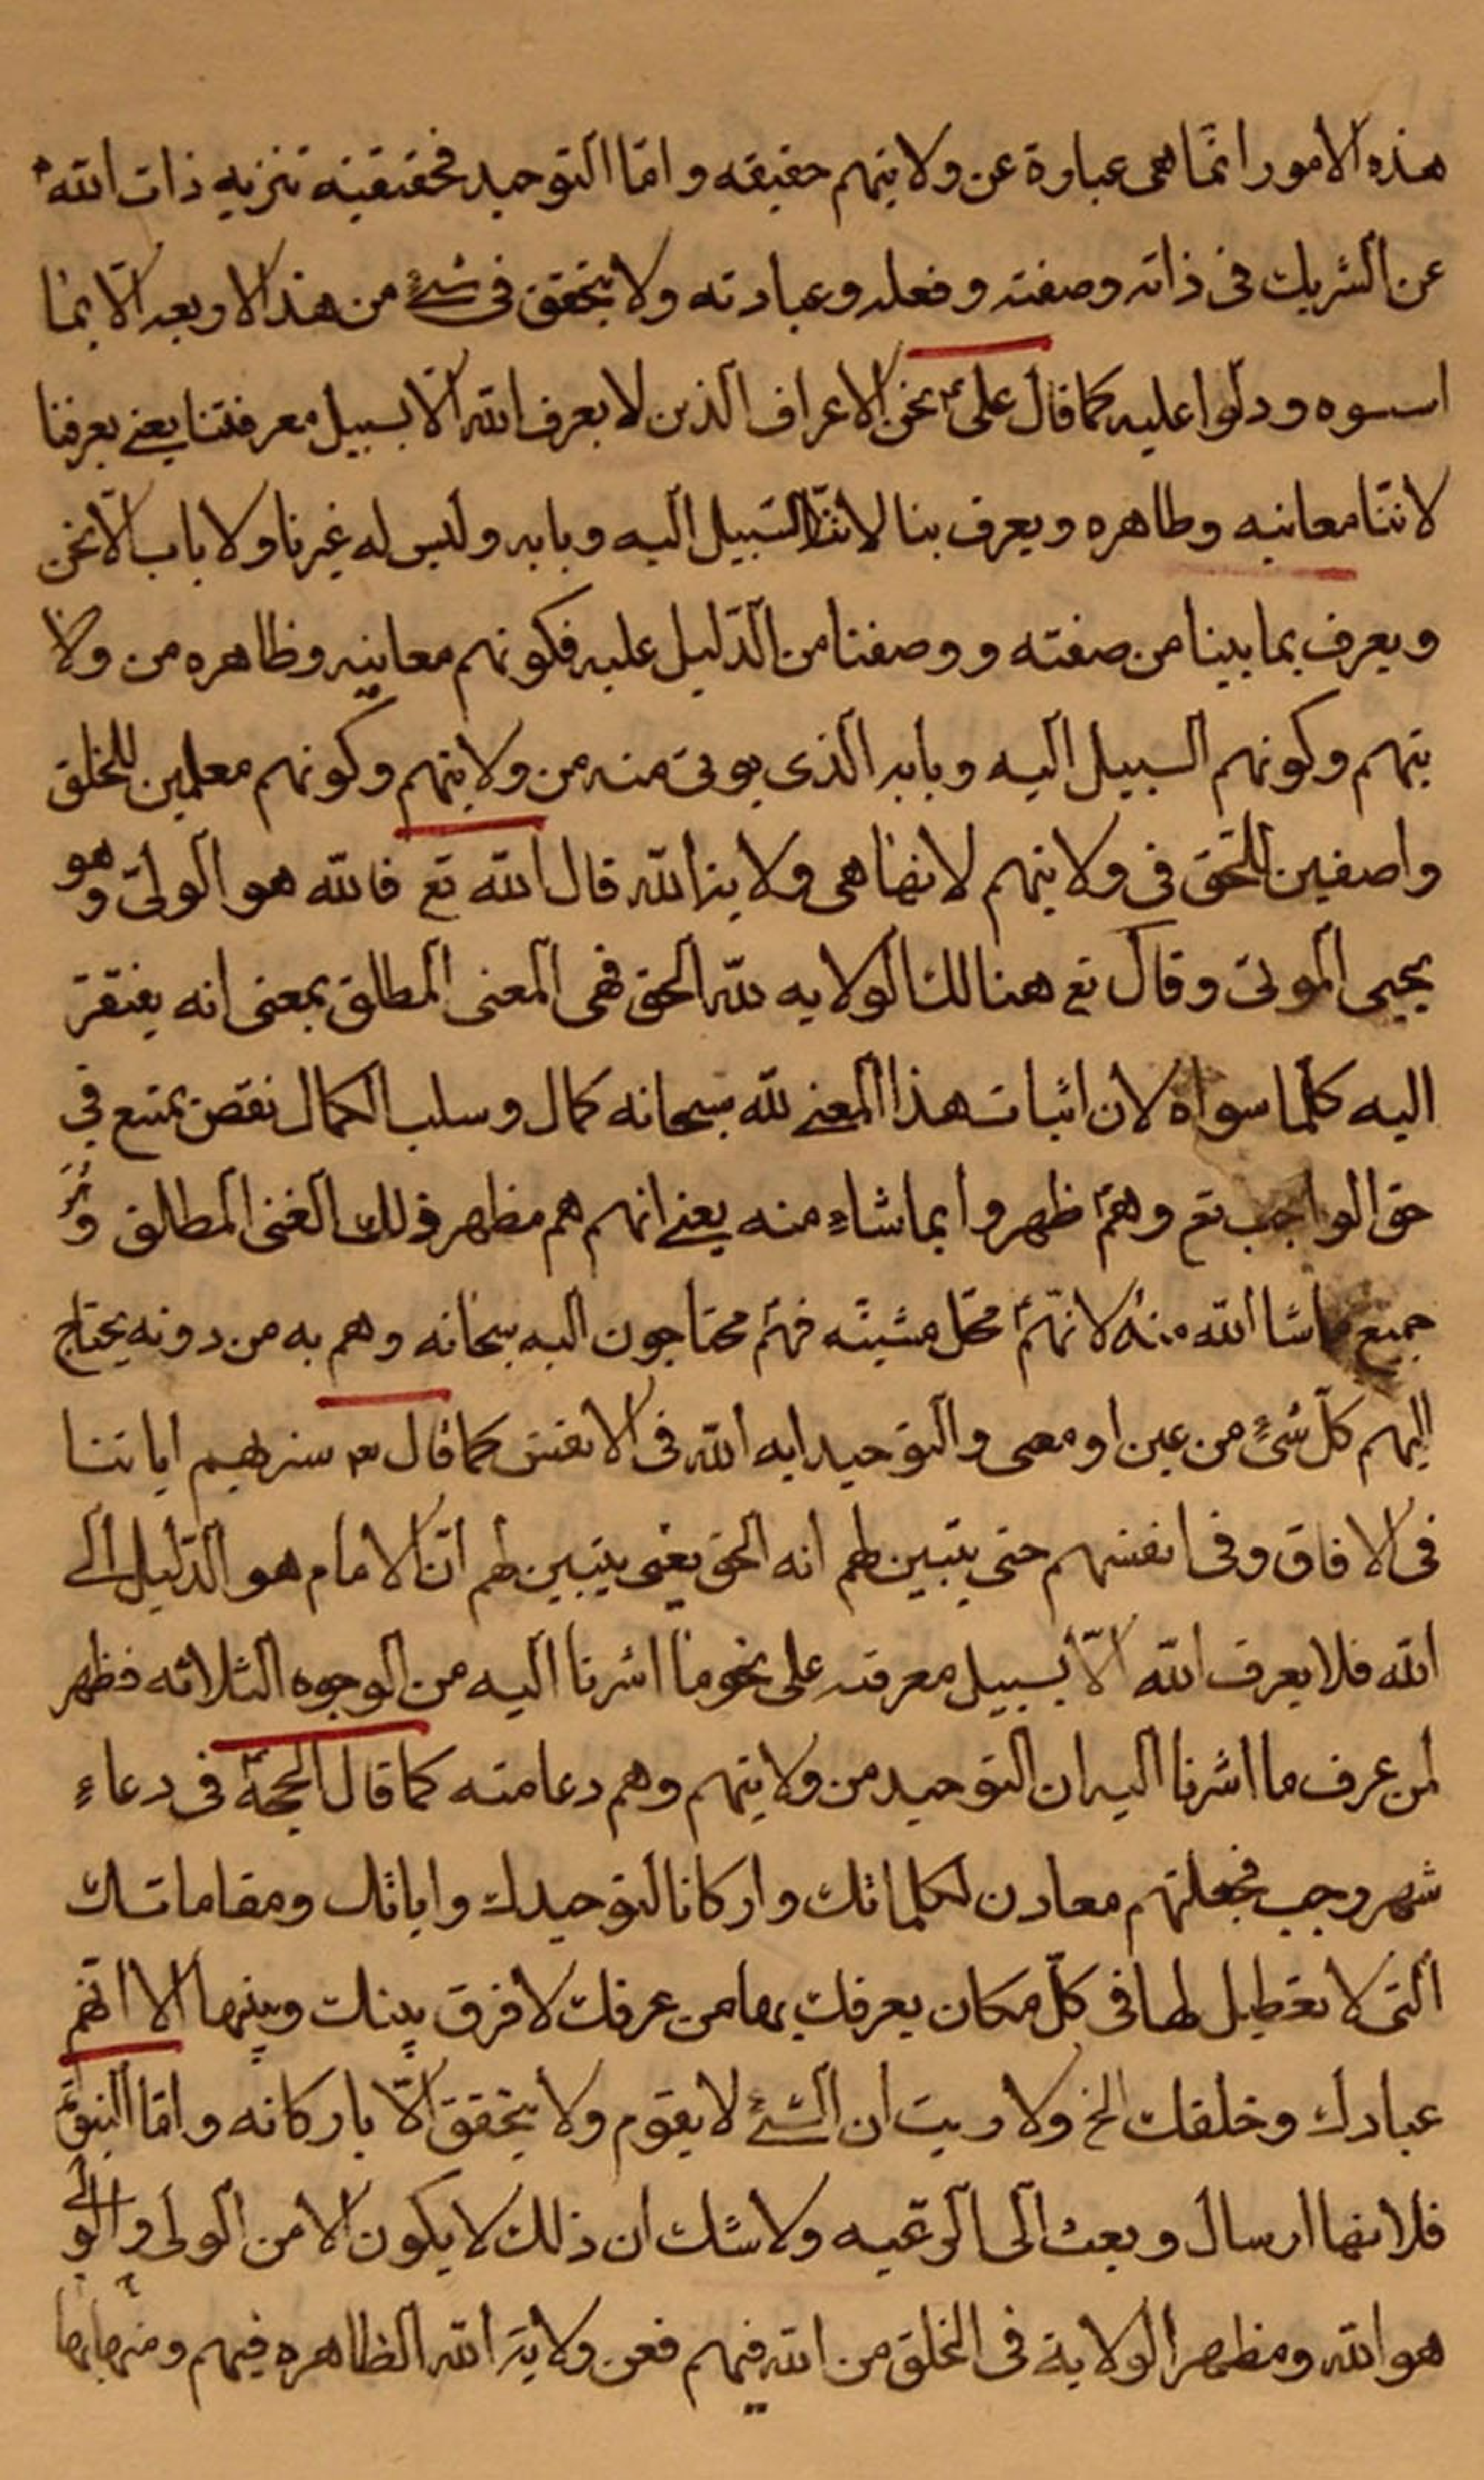 هذه الامور انما هى عبارة عن ولايتهم حقيقه و امّا التوحيد فحقيقته تنزيه ذات الله
عن الشريك فى ذاته وصفته وفعله وعبادته ولا يتحقق فى شئ من هذا الاربعه الّا بما
اسسوه ودلّوا عليه كما قال على ع نحن الاعراف الذين لا يعرف الله الّا بسبيل معرفتنا يعنى يعرفنا
لاننا معانيه وظاهره ويعرف بنا لاننا السّبيل اليه وبابه وليس له غيرنا ولا باب الّا نحن
ويعرف بما بينا من صفته و وصفنا من الدّليل عليه فكونهم معانيه وظاهره من ولا
يتهم وكونهم السبيل اليه وبابه الذى يوتى منه من ولايتهم وكونهم معلمين للخلق
واصفين للحّق فى ولايتهم لانها هى ولاية الله قال الله تع فالله هو الولىّ وهو
يحيى الموتى وقال تع هنالك الولايه للّه الحق فهى المعنى المطلق بمعنى انه يفتقر
اليه كلّما سواه لان اثبات هذا المعنى للّه سبحانه كمال وسلب الكمال نقص يمتنع فى
حق الواجب تع وهم ظهروا بما شاء منه يعنى انهم هم مظهر ذلك الغنى المطلق و
جميع ما شا الله منه لانّهم محّل مشيته فهم محتاجون اليه سبحانه وهم به من دونه يحتاج
اليهم كلّ شئ من عين او معنى والتوحيد ايه الله فى الانفس كما قال سنريهم اياتنا
فى الافاق وفى انفسهم حتى يتبين لهم انه الحق يعنى يتبين لهم انّ الامام هو الدّليل الى
الله فلا يعرف الله الّا بسبيل معرفته على نحو ما اشرنا اليه من الوجوه الثلاثه فظهر
لمن عرف ما اشرنا اليه ان التوحيد من ولايتهم وهم دعامته كما قال الحجّة فى دعاء
شهر رجب فجعلتهم معادن لكلماتك واركانا لتوحيدك واياتك ومقاماتك
التى لا تعطيل لها فى كلّ مكان يعرفك بها من عرفك لا فرق بينك وبينها الا انّهم
عبادك وخلقك الخ ولا ريب ان الشئ لا يقوم ولا يتحقق الّا باركانه وامّا النبوّة
فلانها ارسال وبعث الى الرّعيه ولا شك ان ذلك لا يكون الا من الولى والولى
هو الله ومظهر الولاية فى الخلق من الله فيهم فعن ولاية الله الظاهره فيهم ومنها بها